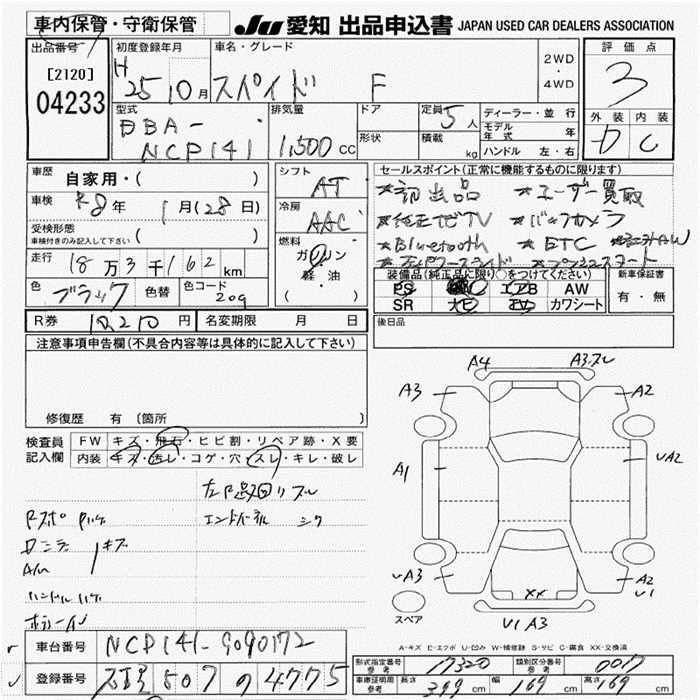 車内保管・守衛保管
JU 愛知 出品申込書 JAPAN USED CAR DEALERS ASSOCIATION
出品番号
[2120]
04233
初度登録年月
H 25 10月
車名・グレード
スペイド F
2WD
・
4WD
評価点
3
外装 内装
D C
型式
DBA-
NCP141
排気量
1,500 cc
ドア
形状
定員 5人
積載 kg
ディーラー・並行
モデル年式 年
ハンドル 左・右
車歴
自家用・( )
車検
R8年 1月(28日)
受検形態
車検付きのみ記入して下さい ( )
走行
18万3千162km
色
ブラック
色替
色コード
209
シフト
AT
冷房
AAC
燃料
ガソリン
軽・油
( )
セールスポイント(正常に機能するものに限ります)
*初出品 *ユーザー買取
*純正ナビTV *バックカメラ
*Bluetooth *ETC
*左パワースライド *プッシュスタート
装備品(純正品に限り○をつけてください)
PS エアB AW
SR ナビ TV カワシート
新車保証書
有・無
後日品
R券 10,210円 名変期限 月 日
注意事項申告欄(不具合内容等は具体的に記入して下さい)
修復歴 有 〔箇所 〕
検査員
記入欄
FW キズ・飛石・ヒビ割・リペア跡・X要
内装 キズ・汚レ・コゲ・穴・スレ・キレ・破レ
エンドパネル
キズ
A/W
A4 A3
A3 A2
A1 UA2
UA3 A2
U1
XX
スペア
U1 A3
A-キズ E-エクボ U-凹み W-補修跡 S-サビ C-腐食 XX-交換済
車台番号 NCP141-9090172
登録番号 507 の 4775
形式指定番号 参考 17320 類別区分番号 参考 0017
車庫証明用 参考 長さ 399cm 幅 169cm 高さ 169cm